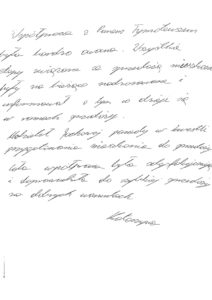 Współpraca z Panem Tymoteuszem
była bardzo owocna. Wszystkie
etapy związane ze sprzedażą mieszkania
były na bieżąco nadzorowane i
informował o tym co dzieje się
w ramach sprzedaży.
Udzielał fachowej porady w kwestii
przygotowania mieszkania do sprzedaży.
Cała współpraca była satysfakcjonująca
i doprowadziła do szybkiej sprzedaży
na dobrych warunkach.
Katarzyna